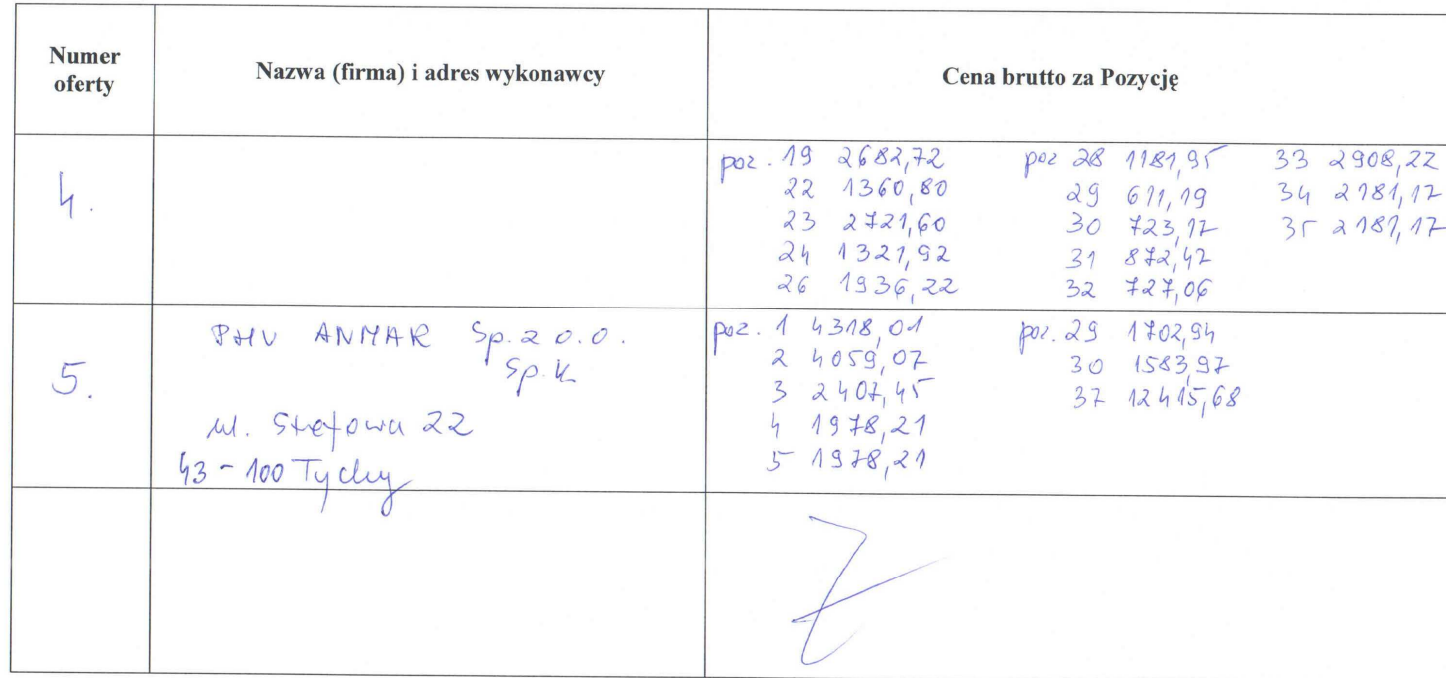 Numer
oferty
Nazwa (firma) i adres wykonawcy
Cena brutto za Pozycję
4.
poz. 19 2682,72
22 1360,80
23 2721,60
24 1321,92
26 1936,22
poz 28 1181,95
29 611,19
30 723,17
31 872,47
32 727,06
33 2908,22
34 2181,17
35 2181,17
5.
PHU ANMAR Sp. z o.o.
Sp.k.
ul. Strefowa 22
43-100 Tychy
poz. 1 4318,01
2 4059,07
3 2407,45
4 1978,21
5 1978,21
poz. 29 1702,94
30 1583,97
37 12415,68